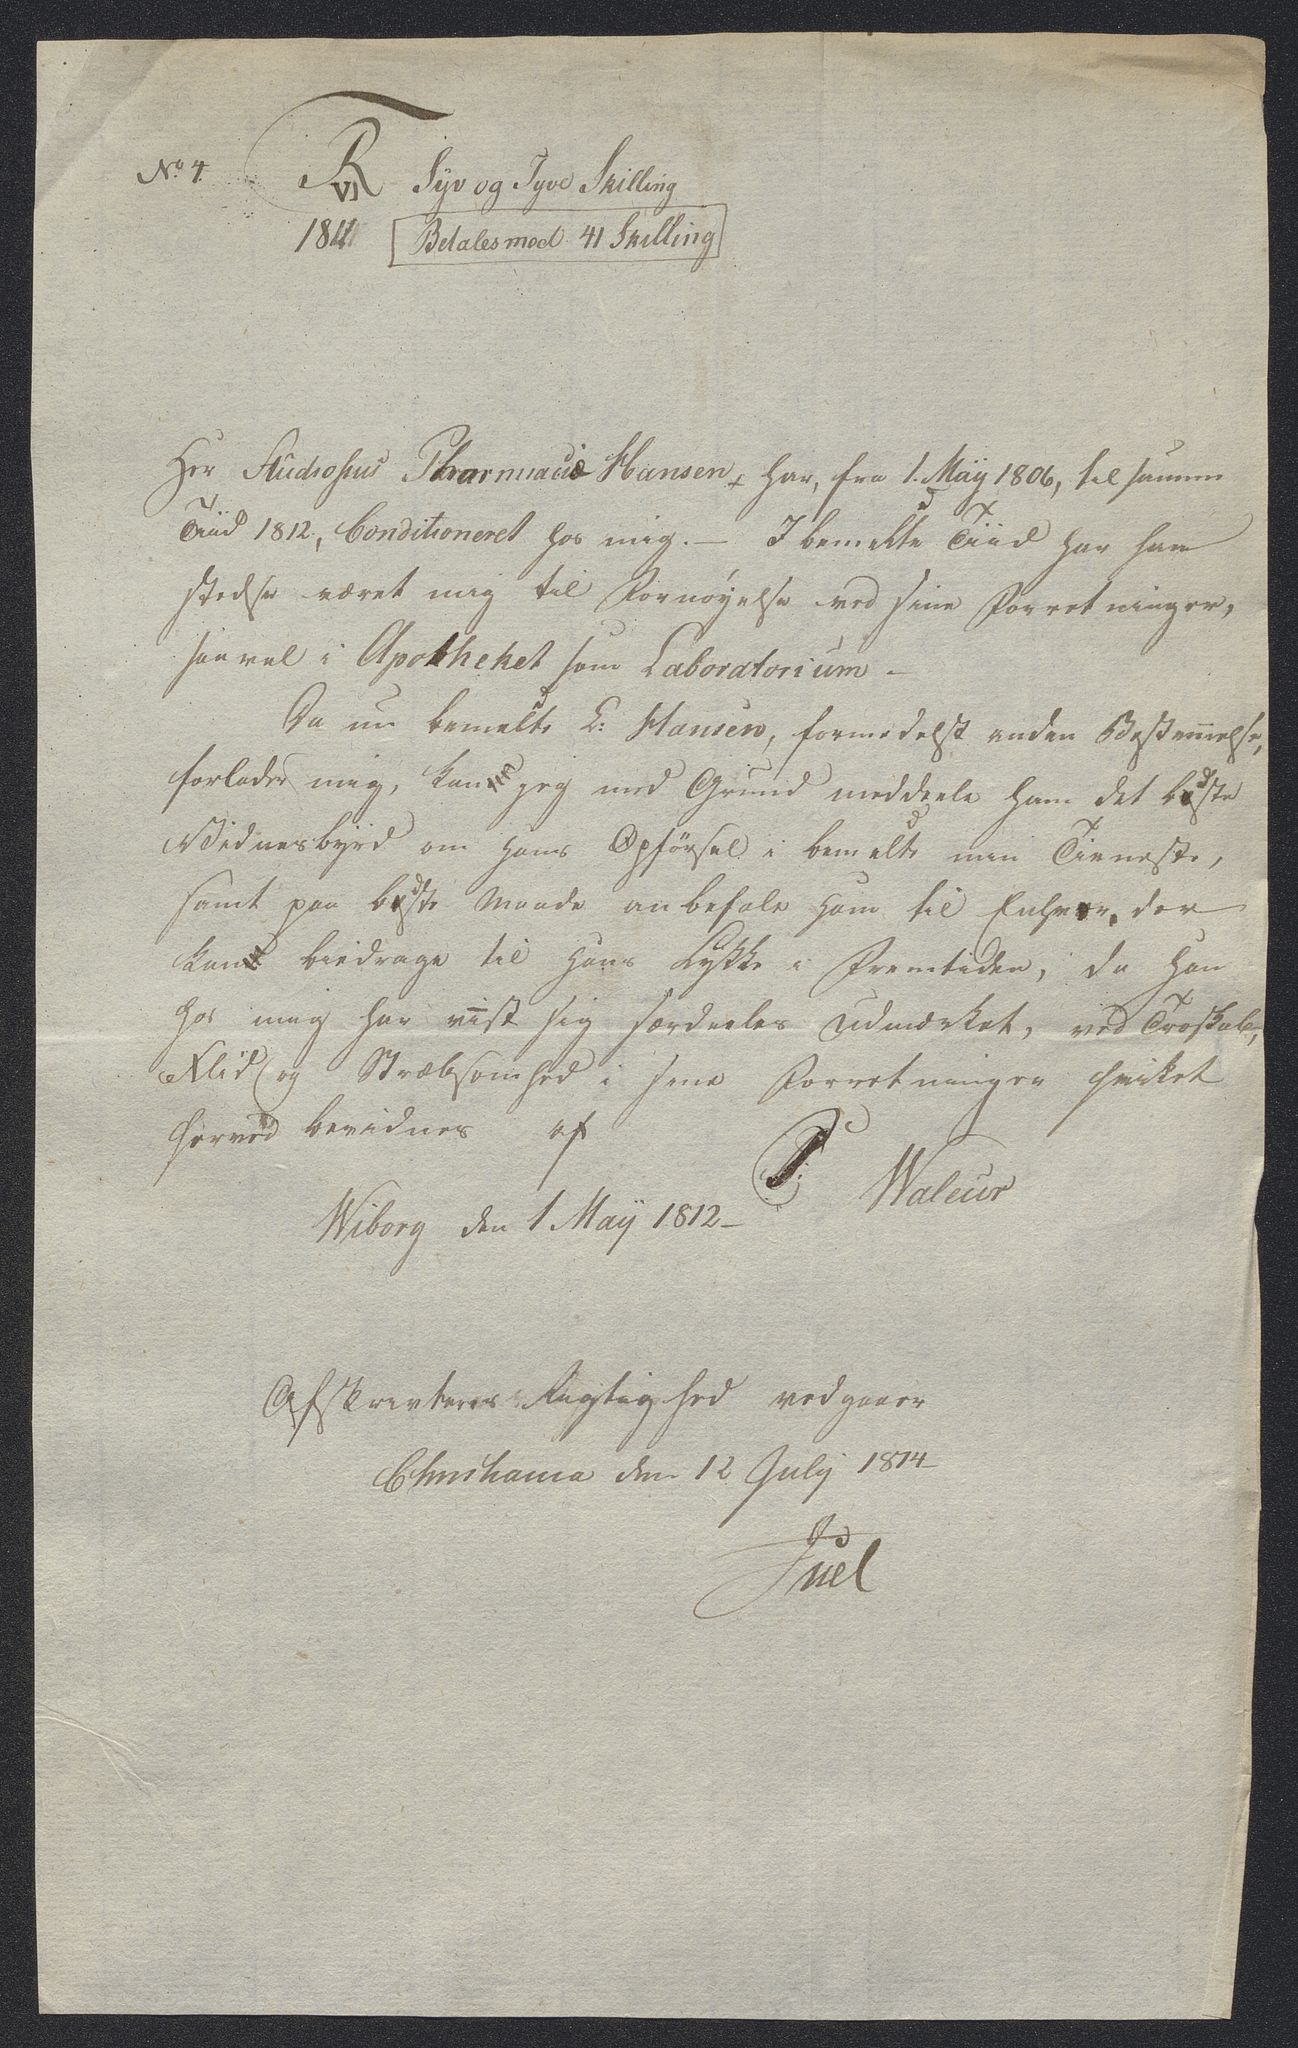 No. 4. R VI Syv og Tyve Skilling
1811 Betales med 41 Skilling
Her Studiosus Pharmaciæ Hansen har, fra 1. Maÿ 1806, til samme
Tiid 1812, Conditioneret hos mig. — I bemeldte Tiid har han
stedse været mig til Fornøyelse ved sine Forretninger,
saavel i Apotheket som Laboratorium —
Da nu bemeldte L: Hansen, formedelst anden Bestemmelse,
forlader mig, kan jeg med Grund meddeele ham det bedste
Vidnesbyrd om hans Opførsel i bemeldte min Tieneste,
samt paa bedste Maade anbefale ham til Enhver, der
kan biedrage til hans Lykke i Fremtiden, da han
hos mig har viist sig særdeeles udmærket, ved Troskab,
Flid og Stræbsomhed i sine Forretninger hvilket
herved bevidnes af
P: Waleur
Wiborg den 1 Maÿ 1812 —
Afskrivtens Rigtighed vedgaaer
Christiania den 12 Julÿ 1814
Juel